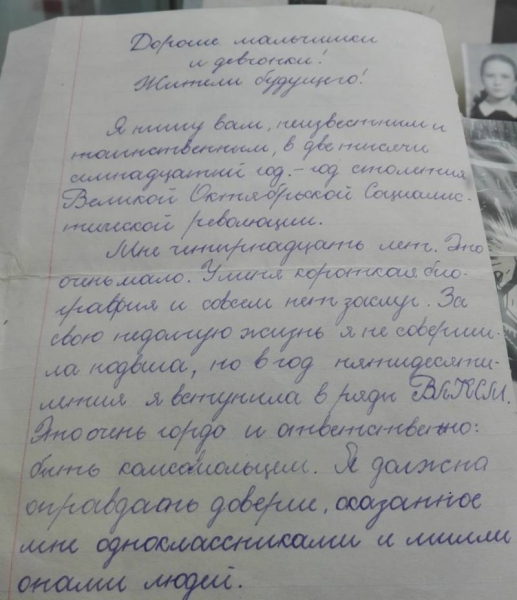 Дорогие мальчишки
и девчонки!
Жители будущего!
Я пишу вам, неизвестным и
таинственным, в две тысячи
семнадцатый год. – год столетия
Великой Октябрьской Социалис-
тической революции.
Мне четырнадцать лет. Это
очень мало. У меня короткая био-
графия и совсем нет заслуг. За
свою недолгую жизнь я не соверши-
ла подвига, но в год пятидесяти-
летия я вступила в ряды ВЛКСМ.
Это очень гордо и ответственно:
быть комсомольцем. Я должна
оправдать доверие, оказанное
мне одноклассниками и милли
онами людей.